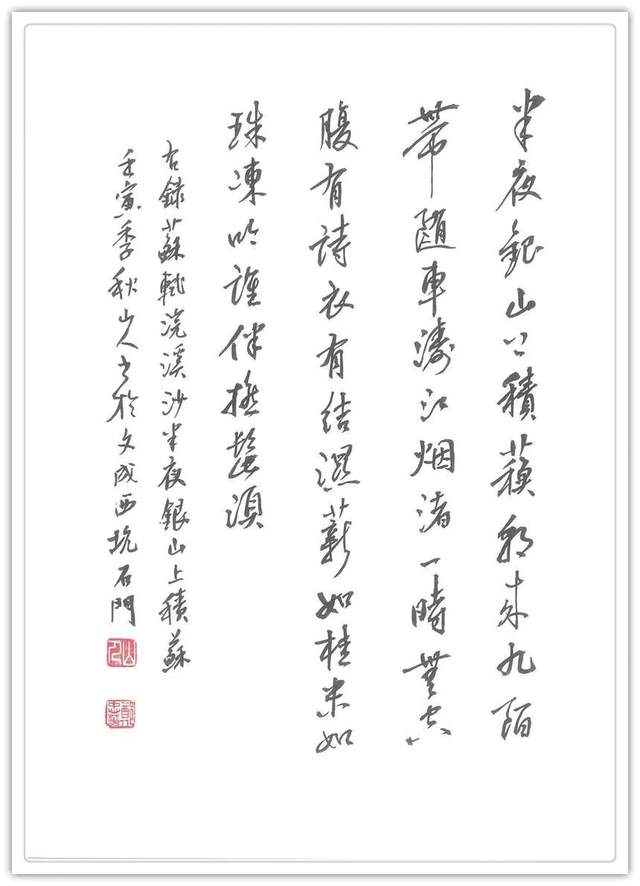 半夜銀山上積蘇朝来九陌
帶隨車濤江烟渚一時無空
腹有詩衣有結濕薪如桂米如
珠凍吟誰伴撚髭湏
右錄蘇軾浣溪沙半夜銀山上積蘇
壬寅季秋山人书於文成西坑石門
山人